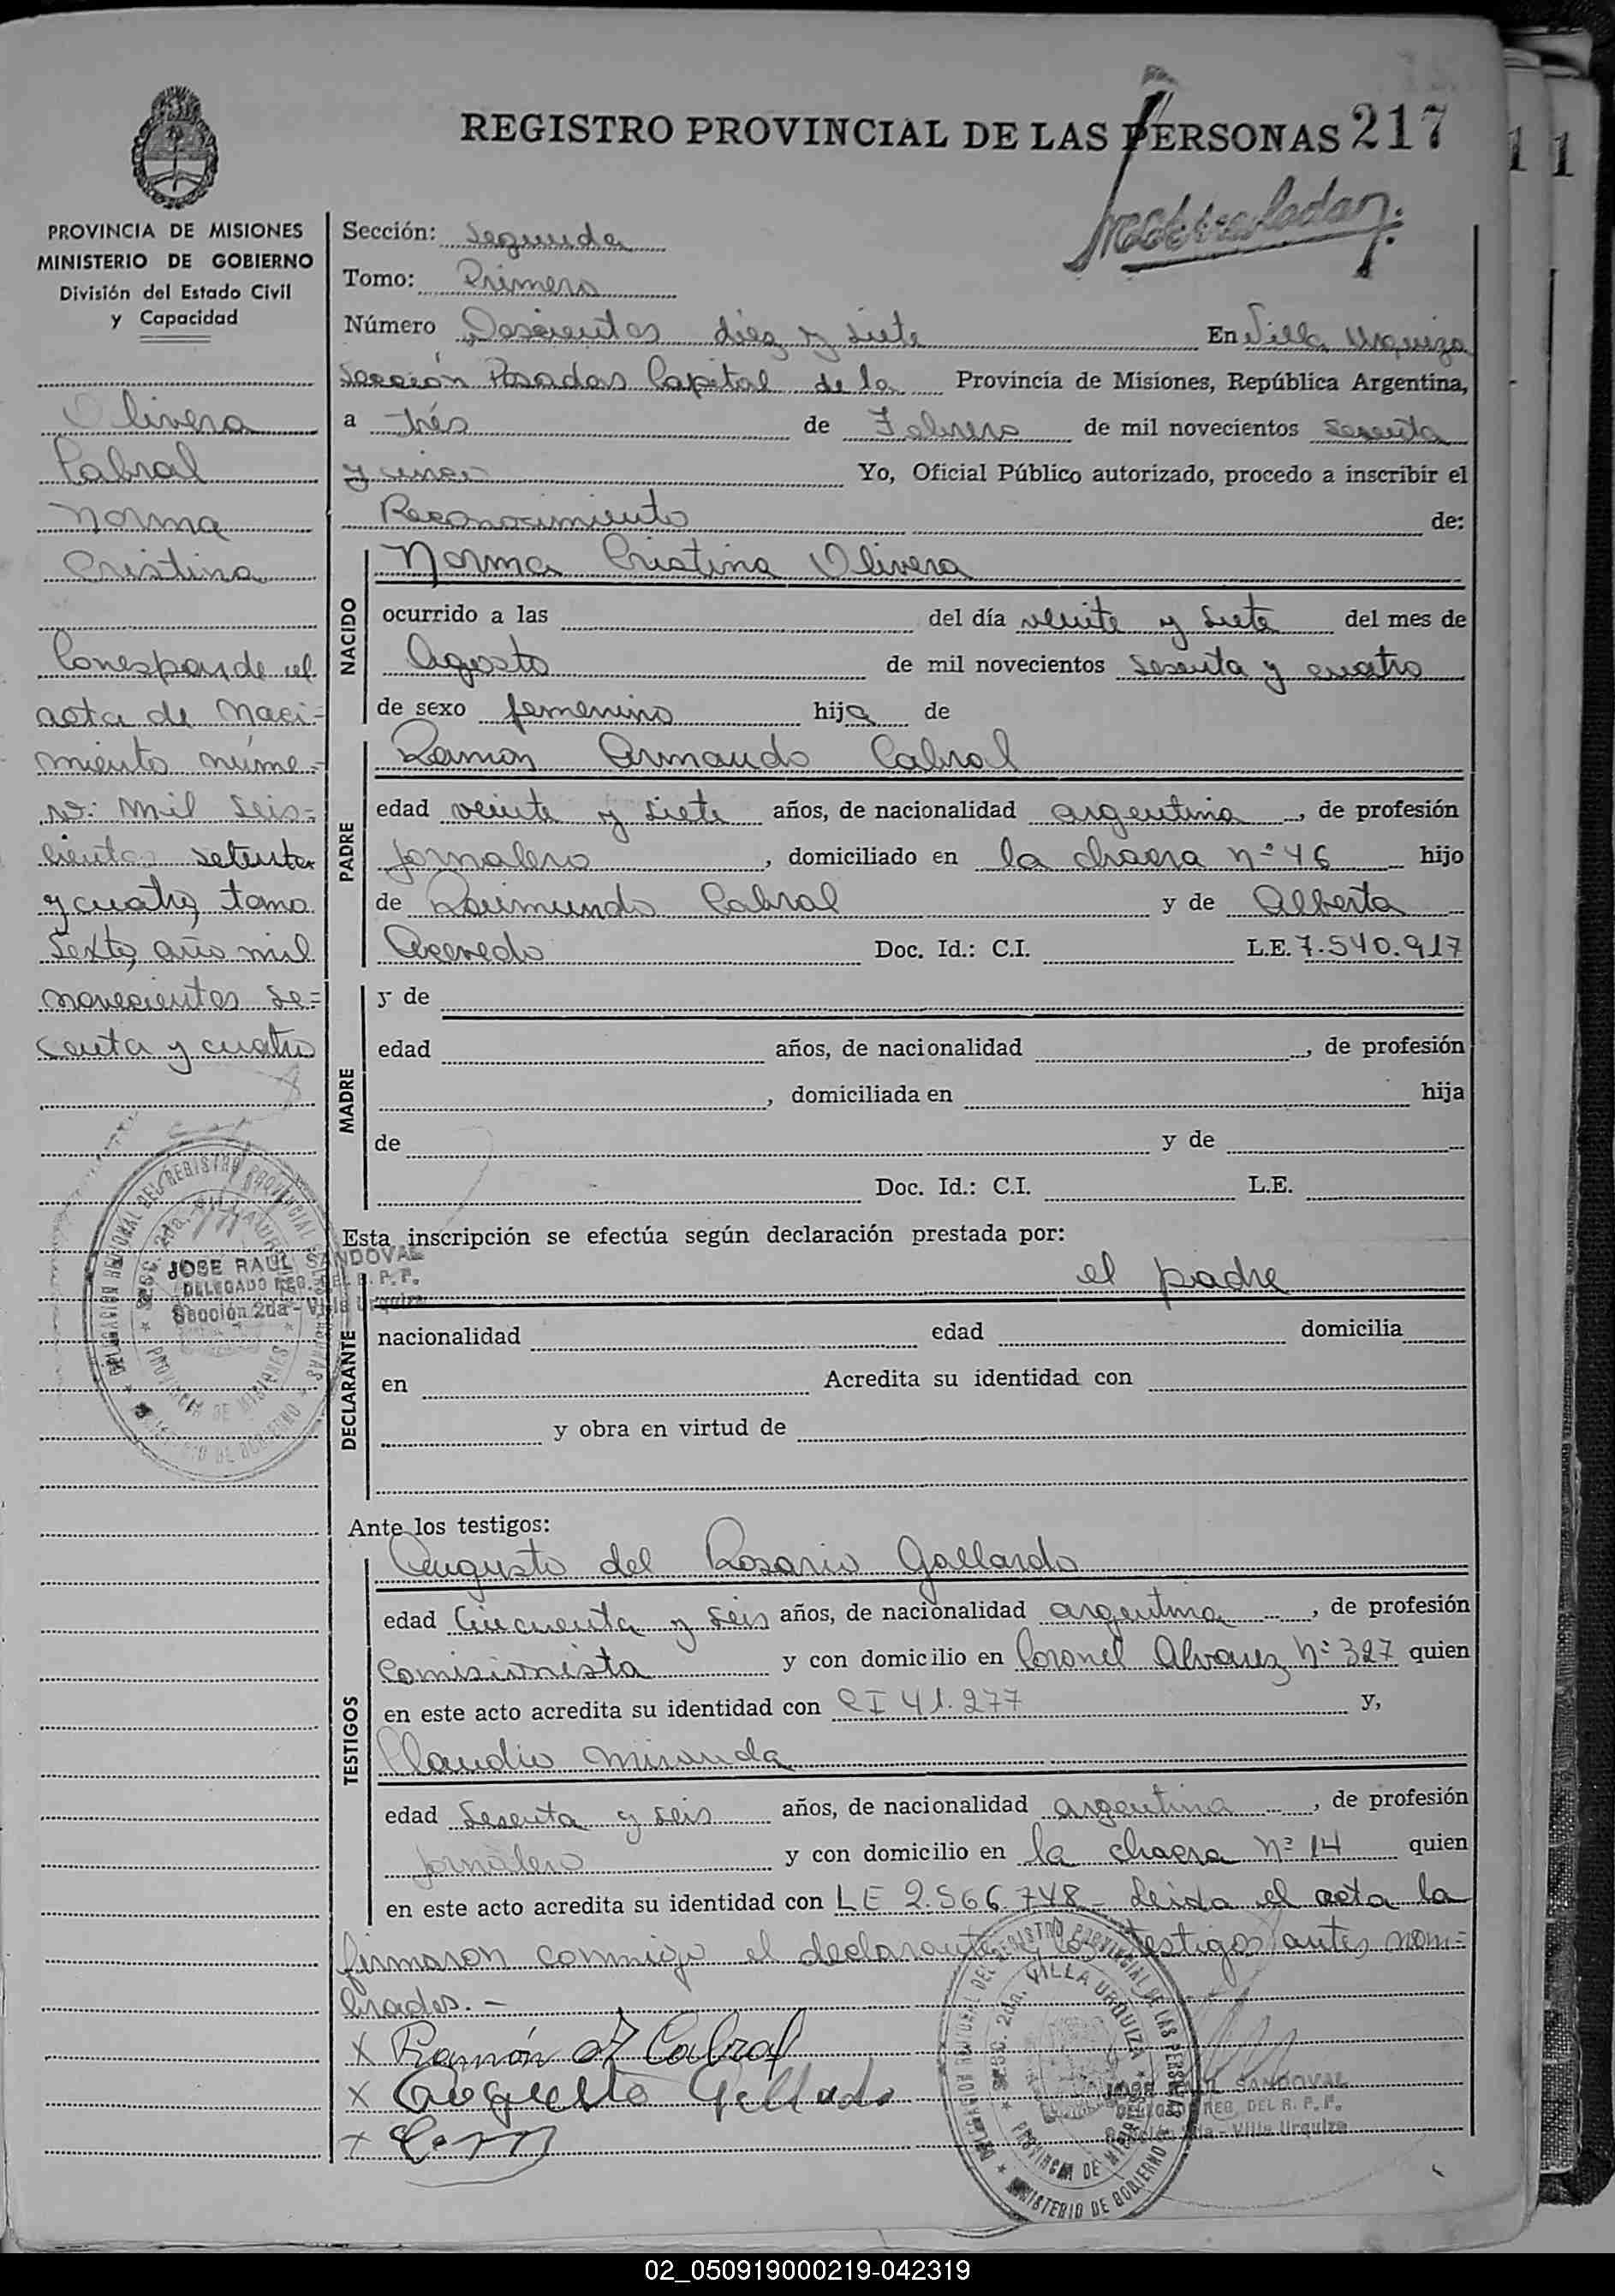 REGISTRO PROVINCIAL DE LAS PERSONAS 217
PROVINCIA DE MISIONES
MINISTERIO DE GOBIERNO
División del Estado Civil
y Capacidad
Olivera
Cabral
Norma
Cristina
Corresponde al
acta de Naci=
miento núme=
ro: mil seis=
cientos setenta
y cuatro, tomo
sexto, año mil
novecientos se=
senta y cuatro
JOSE RAUL SANDOVAL
DELEGADO REG. DEL R. P. P.
Sección 2da - Villa Urquiza
Sección: Segunda
Tomo: Primero
Número Doscientos diez y siete En Villa Urquiza
Sección Posadas Capital de la Provincia de Misiones, República Argentina,
a tres de Febrero de mil novecientos sesenta
y cinco Yo, Oficial Público autorizado, procedo a inscribir el
Reconocimiento de:
NACIDO
Norma Cristina Olivera
ocurrido a las del día veinte y siete del mes de
Agosto de mil novecientos sesenta y cuatro
de sexo femenino hija de
PADRE
Ramon Armando Cabral
edad veinte y siete años, de nacionalidad argentina, de profesión
jornalero, domiciliado en la chacra nº 46 hijo
de Raimundo Cabral y de Alberta
Acevedo Doc. Id.: C.I. L.E. 7.540.917
MADRE
y de
edad años, de nacionalidad , de profesión
, domiciliada en hija
de y de
Doc. Id.: C.I. L.E.
Esta inscripción se efectúa según declaración prestada por:
el padre
DECLARANTE
nacionalidad edad domicilia
en Acredita su identidad con
y obra en virtud de
Ante los testigos:
TESTIGOS
Augusto del Rosario Gallardo
edad Cincuenta y seis años, de nacionalidad argentina, de profesión
comisionista y con domicilio en Coronel Alvarez Nº 327 quien
en este acto acredita su identidad con CI 41.277 y,
Claudio Miranda
edad sesenta y seis años, de nacionalidad argentina, de profesión
jornalero y con domicilio en la chacra nº 14 quien
en este acto acredita su identidad con LE 2.566.748 - Leida el acta la
firmaron conmigo el declarante y los testigos antes nom=
brados. -
x Ramón A Cabral
x Augusto Gallardo
x
DELEGACION REGIONAL DEL REGISTRO PROVINCIAL DE LAS PERSONAS
SECC. 2da. VILLA URQUIZA
PROVINCIA DE MISIONES
MINISTERIO DE GOBIERNO
JOSE RAUL SANDOVAL
DELEGADO REG. DEL R. P. P.
Sección 2da - Villa Urquiza
02_050919000219-042319